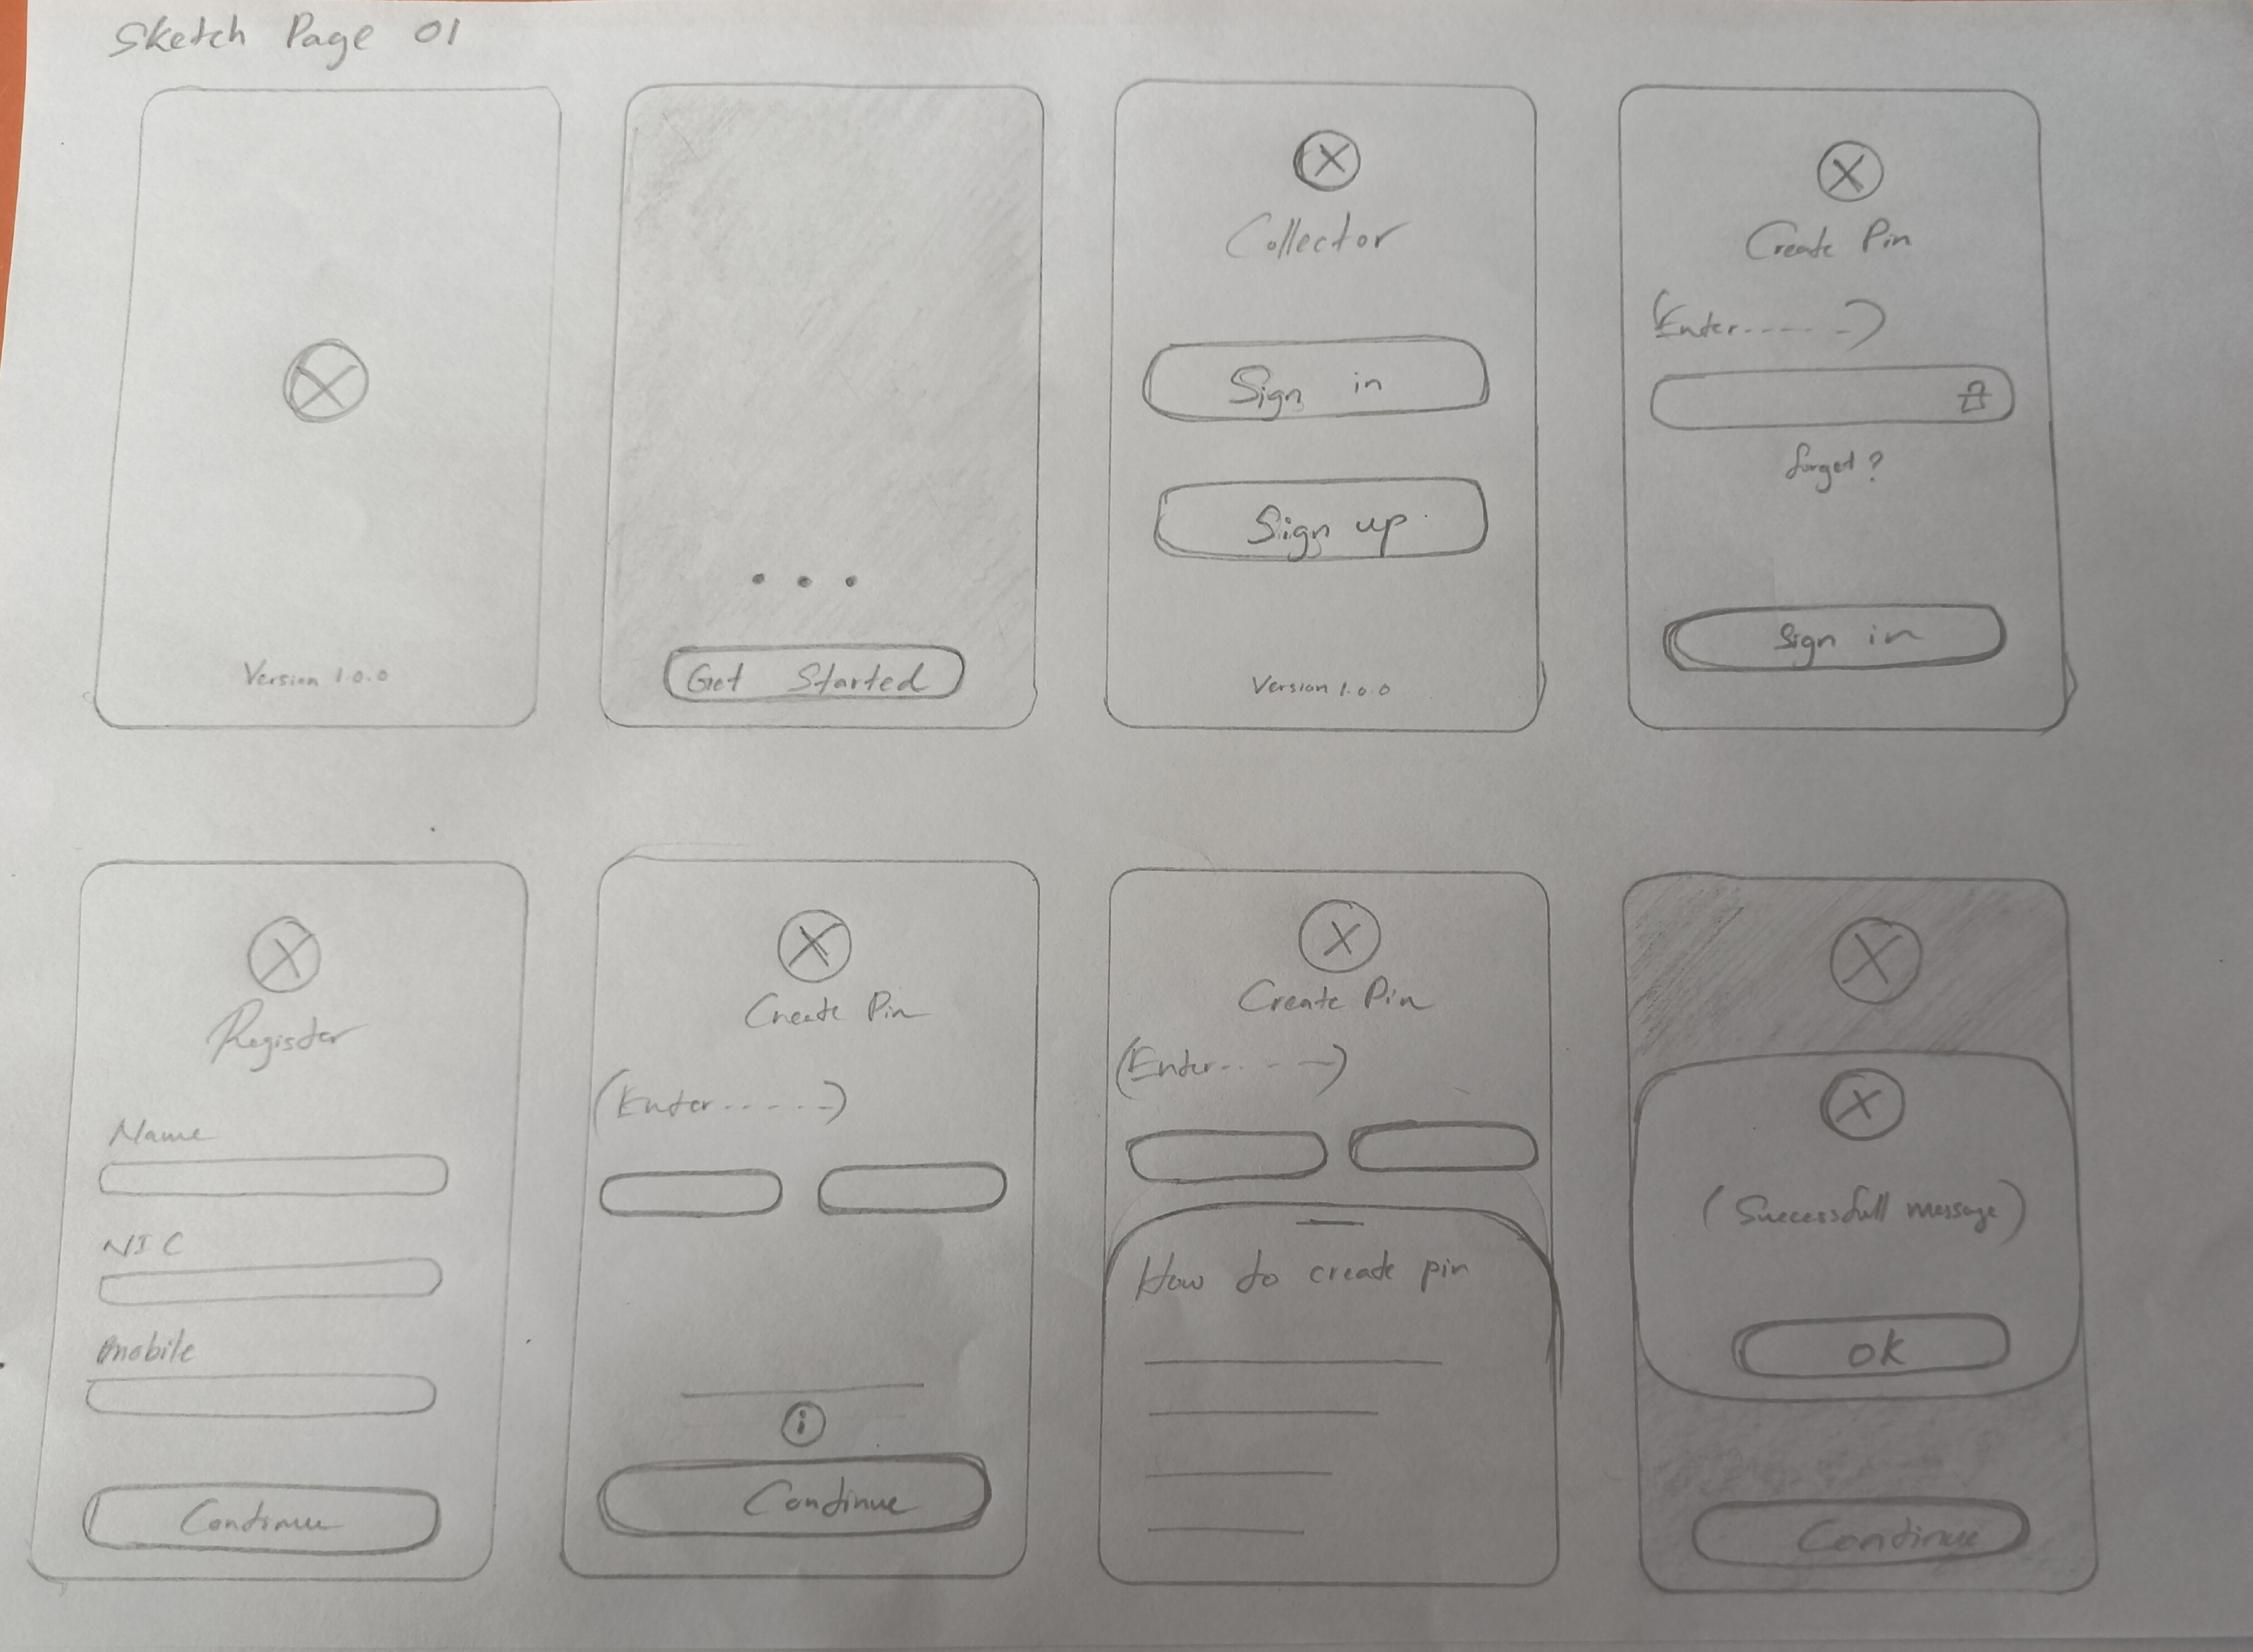 Sketch Page 01
Version 1.0.0
Get Started
Collector
Sign in
Sign up
Version 1.0.0
Create Pin
(Enter------)
forget?
Sign in
Register
Name
NIC
mobile
Continue
Create Pin
(Enter-----)
i
Continue
Create Pin
(Enter-----)
How to create pin
(Successfull message)
OK
Continue